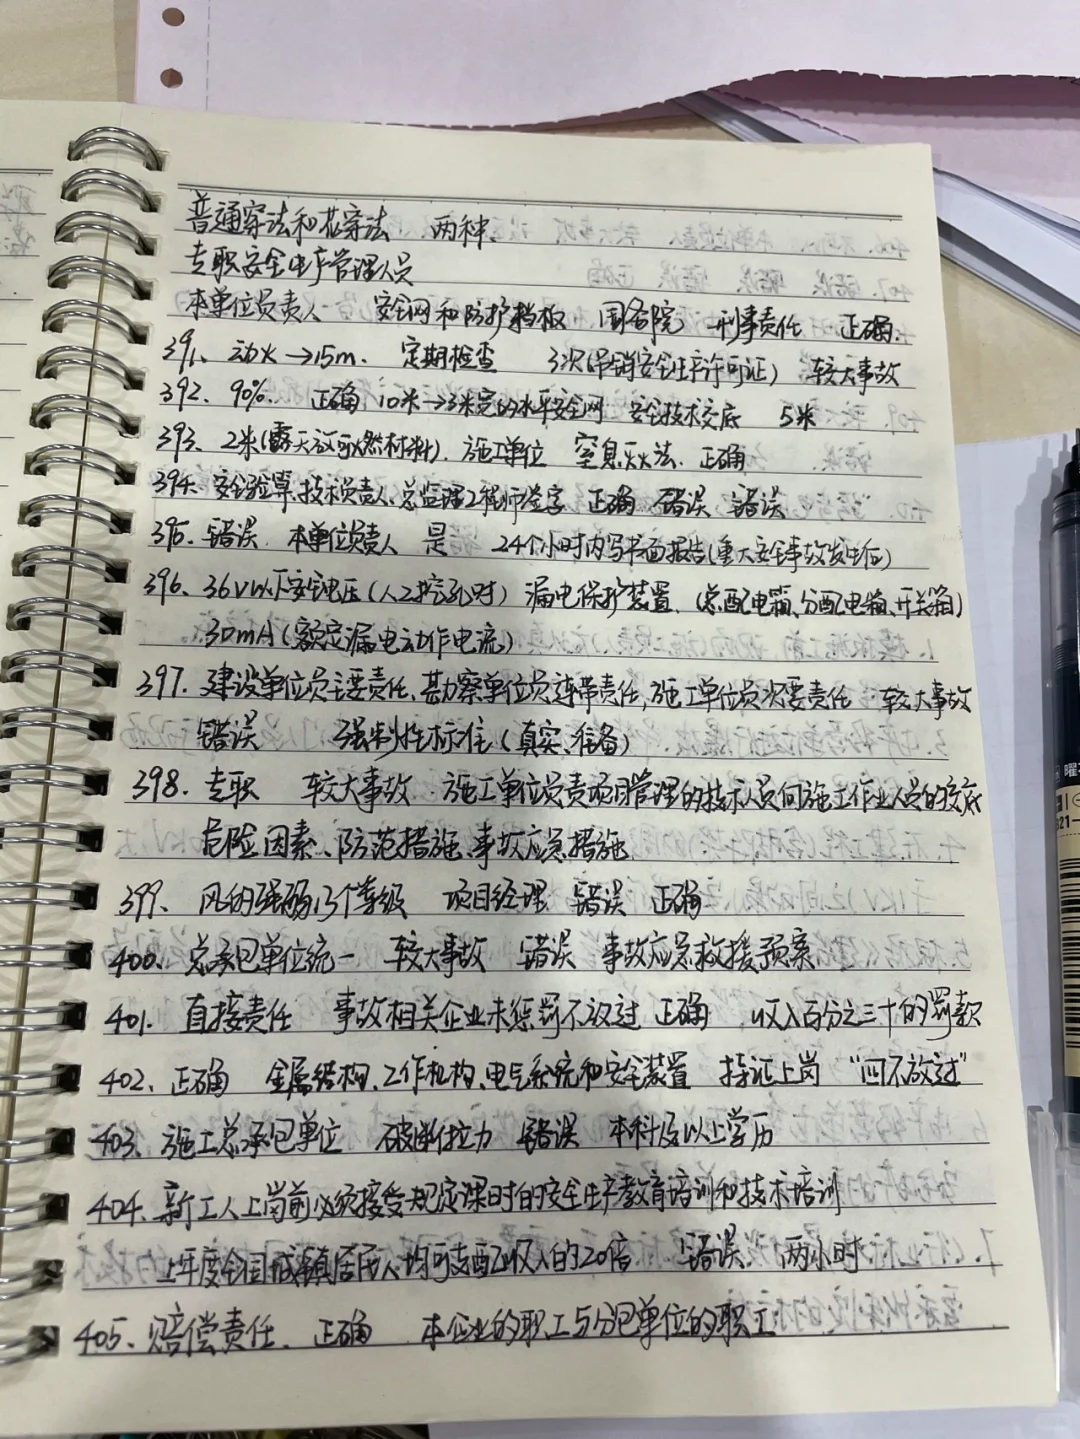 普通穿法和花穿法 两种、
专职安全生产管理人员
本单位负责人 安全网和防护挡板 国务院 刑事责任 正确.
391、动火→15m、 定期检查 3次(吊销安全生产许可证) 较大事故
392、90%. 正确 10米→3米宽的水平安全网 安全技术交底 5米
393、2米(露天放可燃材料). 施工单位 窒息灭火法. 正确
394、安全验算,技术负责人、总监理工程师签字 正确 错误 错误
395、错误 本单位负责人 是 24个小时内写书面报告(重大安全事故发生后)
396、36V以下安全电压(人工挖孔时) 漏电保护装置.(总配电箱、分配电箱、开关箱)
30mA(额定漏电动作电流)
397、建设单位负主要责任、勘察单位负连带责任、施工单位负次要责任 较大事故
错误 强制性标准(真实、准备)
398、专职 较大事故 施工单位负责项目管理的技术人员向施工作业人员的交底
危险因素、防范措施、事故应急措施
399、风的强弱13个等级 项目经理 错误 正确
400、总承包单位统一 较大事故 错误 事故应急救援预案
401、直接责任 事故相关企业未惩罚不放过 正确 收入百分之三十的罚款
402、正确 金属结构、工作机构、电气系统和安全装置 持证上岗 “四不放过”
403、施工总承包单位 破断拉力 错误 本科及以上学历
404、新工人上岗前必须接受规定课时的安全生产教育培训和技术培训
上年度全国城镇居民人均可支配收入的20倍 错误 两小时
405、赔偿责任、正确 本企业的职工与分包单位的职工